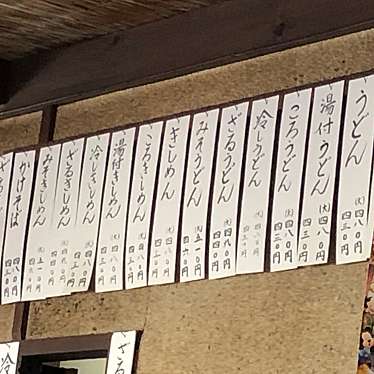 うどん
(大)四八〇円
四三〇円
湯付うどん
(大)四八〇円
四三〇円
ころうどん
(大)四八〇円
四三〇円
冷しうどん
ざるうどん
(大)
みそうどん
(大)五一〇円
四六〇円
きしめん
(大)四八〇円
四三〇円
ころきしめん
(大)四八〇円
四三〇円
湯付きしめん
(大)四八〇円
四三〇円
冷しきしめん
ざるきしめん
みそきしめん
(大)五一〇円
四六〇円
かけそば
(大)四八〇円
四三〇円
ざる
冷し